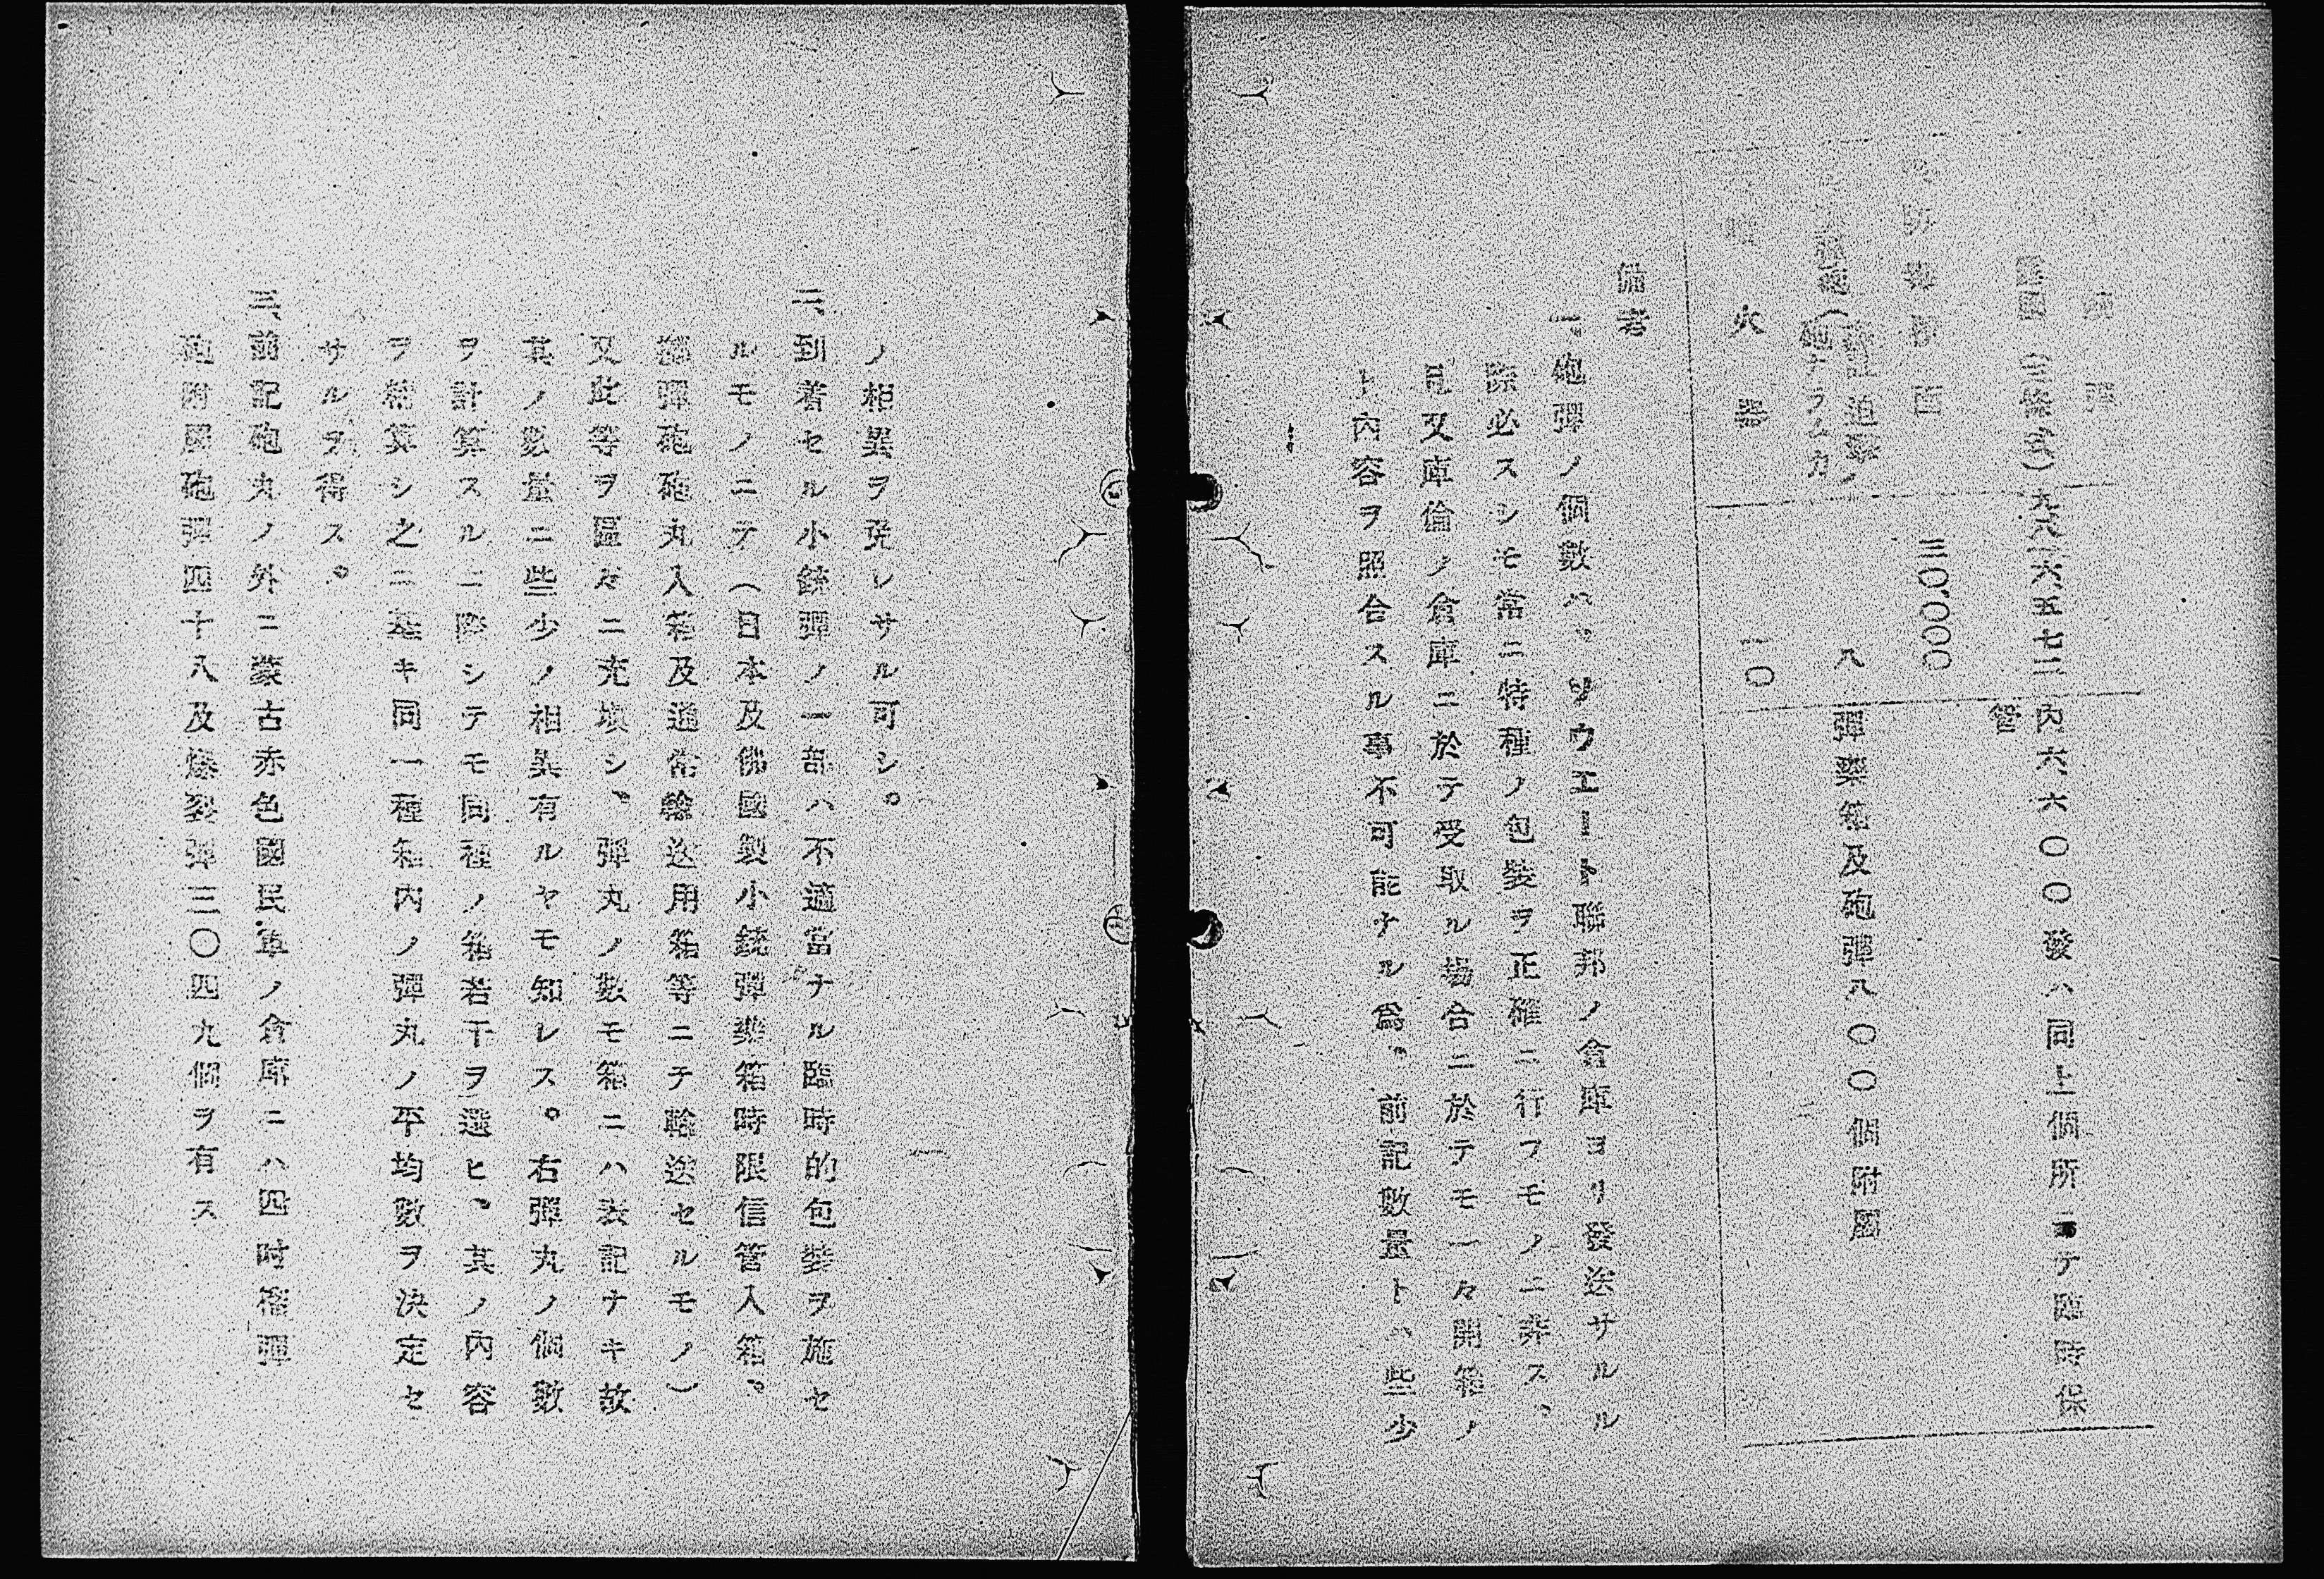 彈
九、六六五七二
內六、六六〇〇發ハ同上個所ニテ臨時保
管
防毒假面
三〇、〇〇〇
八
彈藥箱及砲彈八〇〇〇個附屬
火器
一〇
備考
一、砲彈ノ個數ハ、ソウエート聯邦ノ倉庫ヨリ發送サルル
際必スシモ常ニ特種ノ包裝ヲ正確ニ行フモノニ非ス、
且又庫倫ノ倉庫ニ於テ受取ル場合ニ於テモ一々開箱ノ
ト內容ヲ照合スル事不可能ナル爲、前記數量トハ些少
ノ相異ヲ免レサル可シ。
二、到着セル小銃彈ノ一部ハ不適當ナル臨時的包裝ヲ施セ
ルモノニテ(日本及佛國製小銃彈藥箱時限信管入箱、
擲彈砲砲丸入箱及通常輸送用箱等ニテ輸送セルモノ)
又此等ヲ區々ニ充塡シ、彈丸ノ數モ箱ニハ表記ナキ故
其ノ數量ニ些少ノ相異有ルヤモ知レス。右彈丸ノ個數
ヲ計算スルニ際シテモ同種ノ箱若干ヲ選ヒ、其ノ內容
ヲ精算シ之ニ基キ同一種箱內ノ彈丸ノ平均數ヲ決定セ
サルヲ得ス。
三、前記砲丸ノ外ニ蒙古赤色國民軍ノ倉庫ニハ四吋榴彈
砲附屬砲彈四十八及爆裂彈三〇四九個ヲ有ス